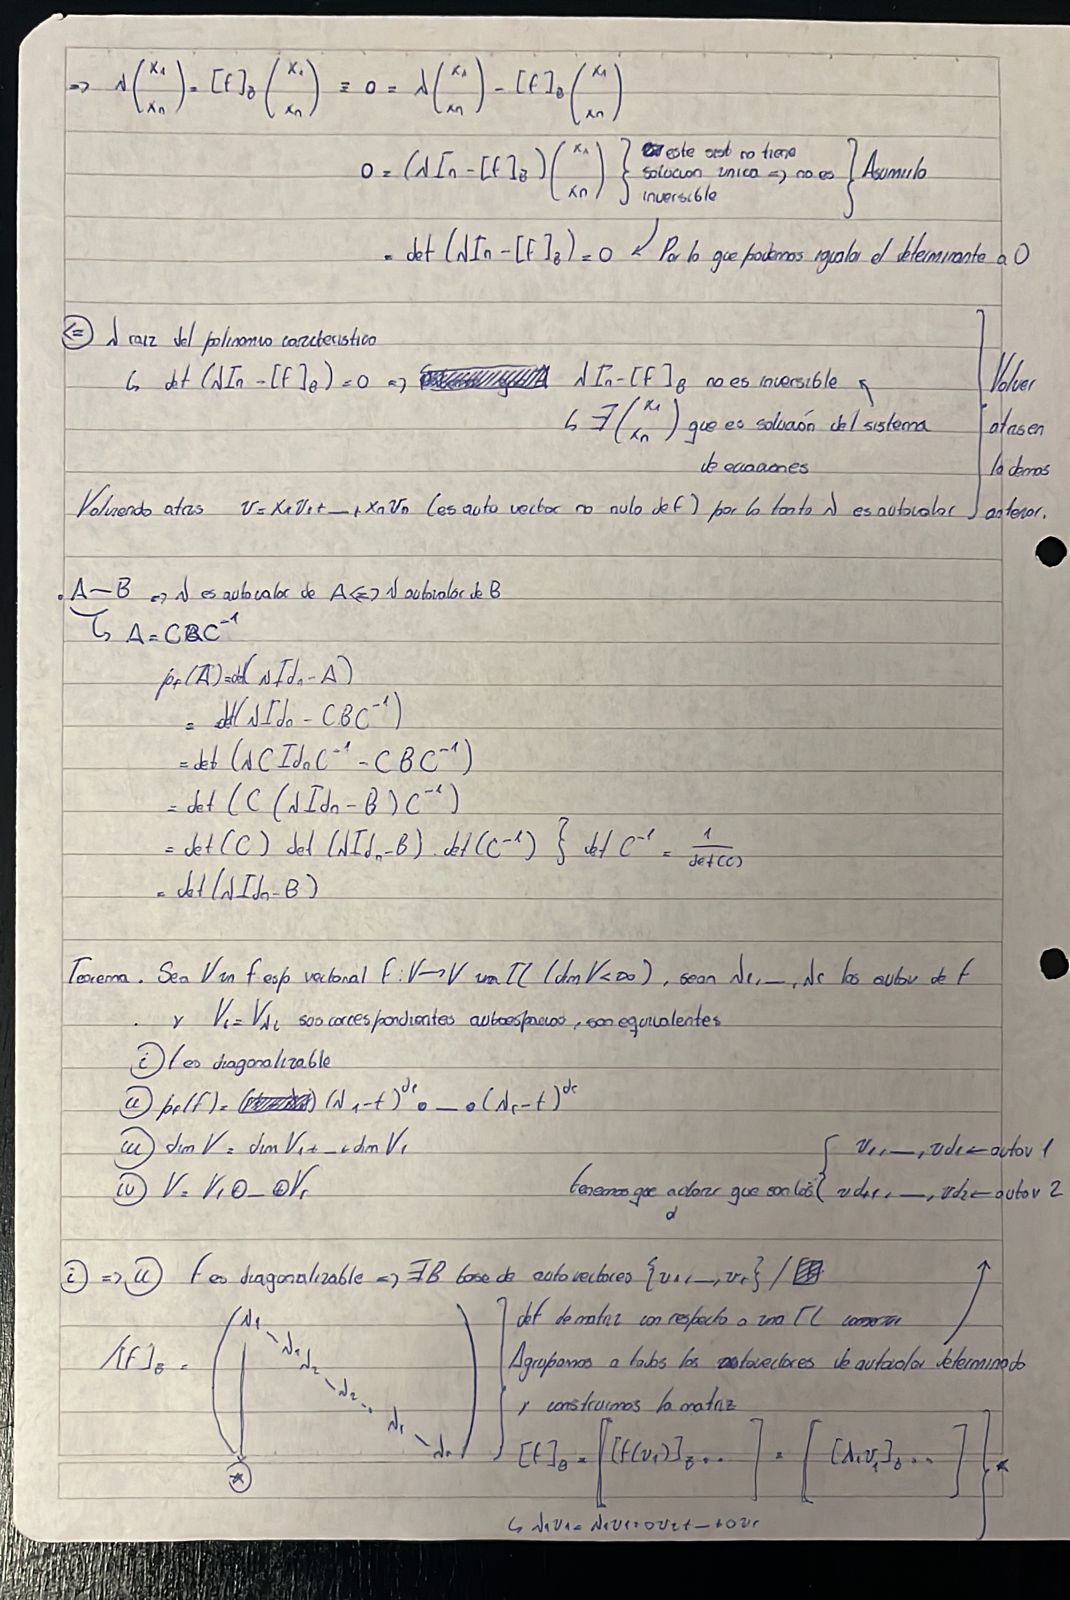 => λ(x1 xn) = [f]B (x1 xn) ≡ 0 = λ(x1 xn) - [f]B (x1 xn)
0 = (λIn - [f]B)(x1 xn) } este sist no tiene solucion unica => no es inversible } Asumulo
= det (λIn - [f]B) = 0 ↙ Por lo que podemos igualar el determinante a 0
(<=) λ raiz del polinomio caracteristico
↳ det (λIn - [f]B) = 0 => λIn - [f]B no es inversible
↳ ∃(x1 xn) que es solución del sistema
de ecuaciones
Volver
atras en
la demos
anterior.
Volviendo atras v = x1v1 + _ + xnvn (es auto vector no nulo de f) por lo tanto λ es autovalor
. A ~ B => λ es autovalor de A <=> λ autovalor de B
↳ A = CBC⁻¹
pf(A) = det(λIdn - A)
= det(λIdn - CBC⁻¹)
= det (λCIdnC⁻¹ - CBC⁻¹)
= det (C (λIdn - B) C⁻¹)
= det(C) det (λIdn - B) . det(C⁻¹) } det C⁻¹ = 1/det(C)
= det(λIdn - B)
Teorema. Sea V un f esp vectorial f: V → V una TL (dim V < ∞), sean λ1, _, λr los autov de f
. y Vi = Vλi sus correspondientes autoespacios, son equivalentes
(i) f es diagonalizable
(ii) pf(f) = (λ1 - t)^d1 . _ . (λr - t)^dr
(iii) dim V = dim V1 + _ + dim V1
(iv) V = V1 ⊕ _ ⊕ Vr
tenemos que aclarar que son los { v1, _, vd1 ← autov 1
vd1, _, vd2 ← autov 2
d
(i) => (ii) f es diagonalizable => ∃B base de autovectores {v1, _, vr} /
[f]B = ( λ1 λ1 λ2 λ2 λ1 λn )
def de matriz con respecto a una TL
Agrupamos a todos los autovectores de autovalor determinado
y construimos la matriz
[f]B = [ [f(v1)]B ... ] = [ [λ1v1]B ... ] } *
(*)
↳ λ1v1 = λ1v1 + 0v2 + _ + 0vr